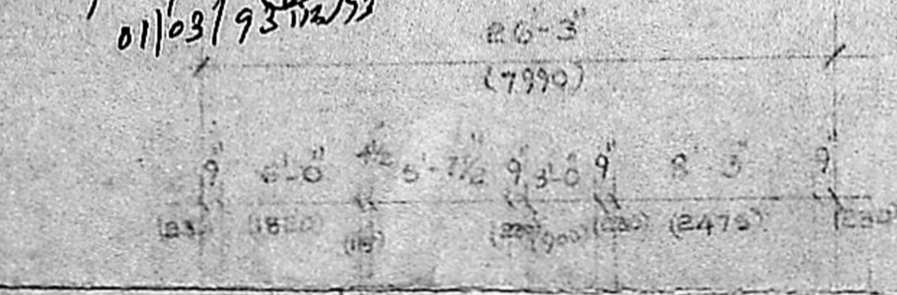 01/03/93
26'-3"
(7990)
9" 6'-0" 4½ 5'-7½" 9" 3'-0" 9" 8'-3" 9"
(1820) (115) (900) (230) (2475) (230)